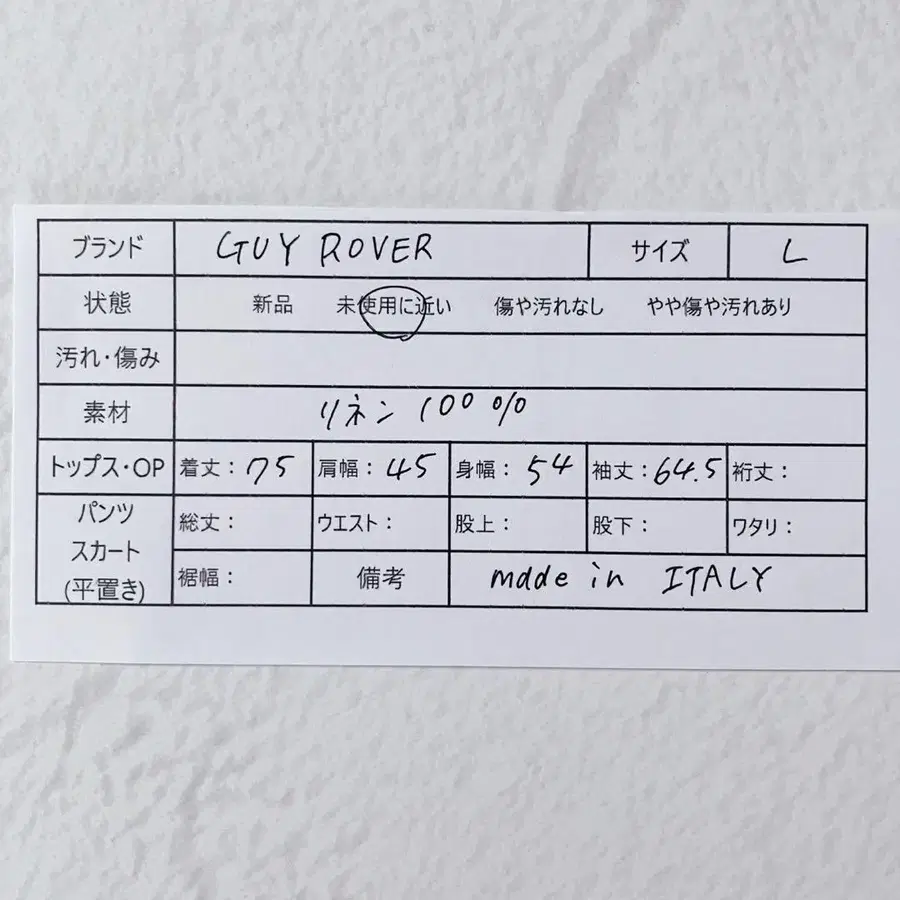 ブランド GUY ROVER サイズ L
状態 新品 未使用に近い 傷や汚れなし やや傷や汚れあり
汚れ・傷み
素材 リネン 100%
トップス・OP 着丈：75 肩幅：45 身幅：54 袖丈：64.5 裄丈：
パンツ
スカート
(平置き)
総丈： ウエスト： 股上： 股下： ワタリ：
裾幅： 備考 made in ITALY